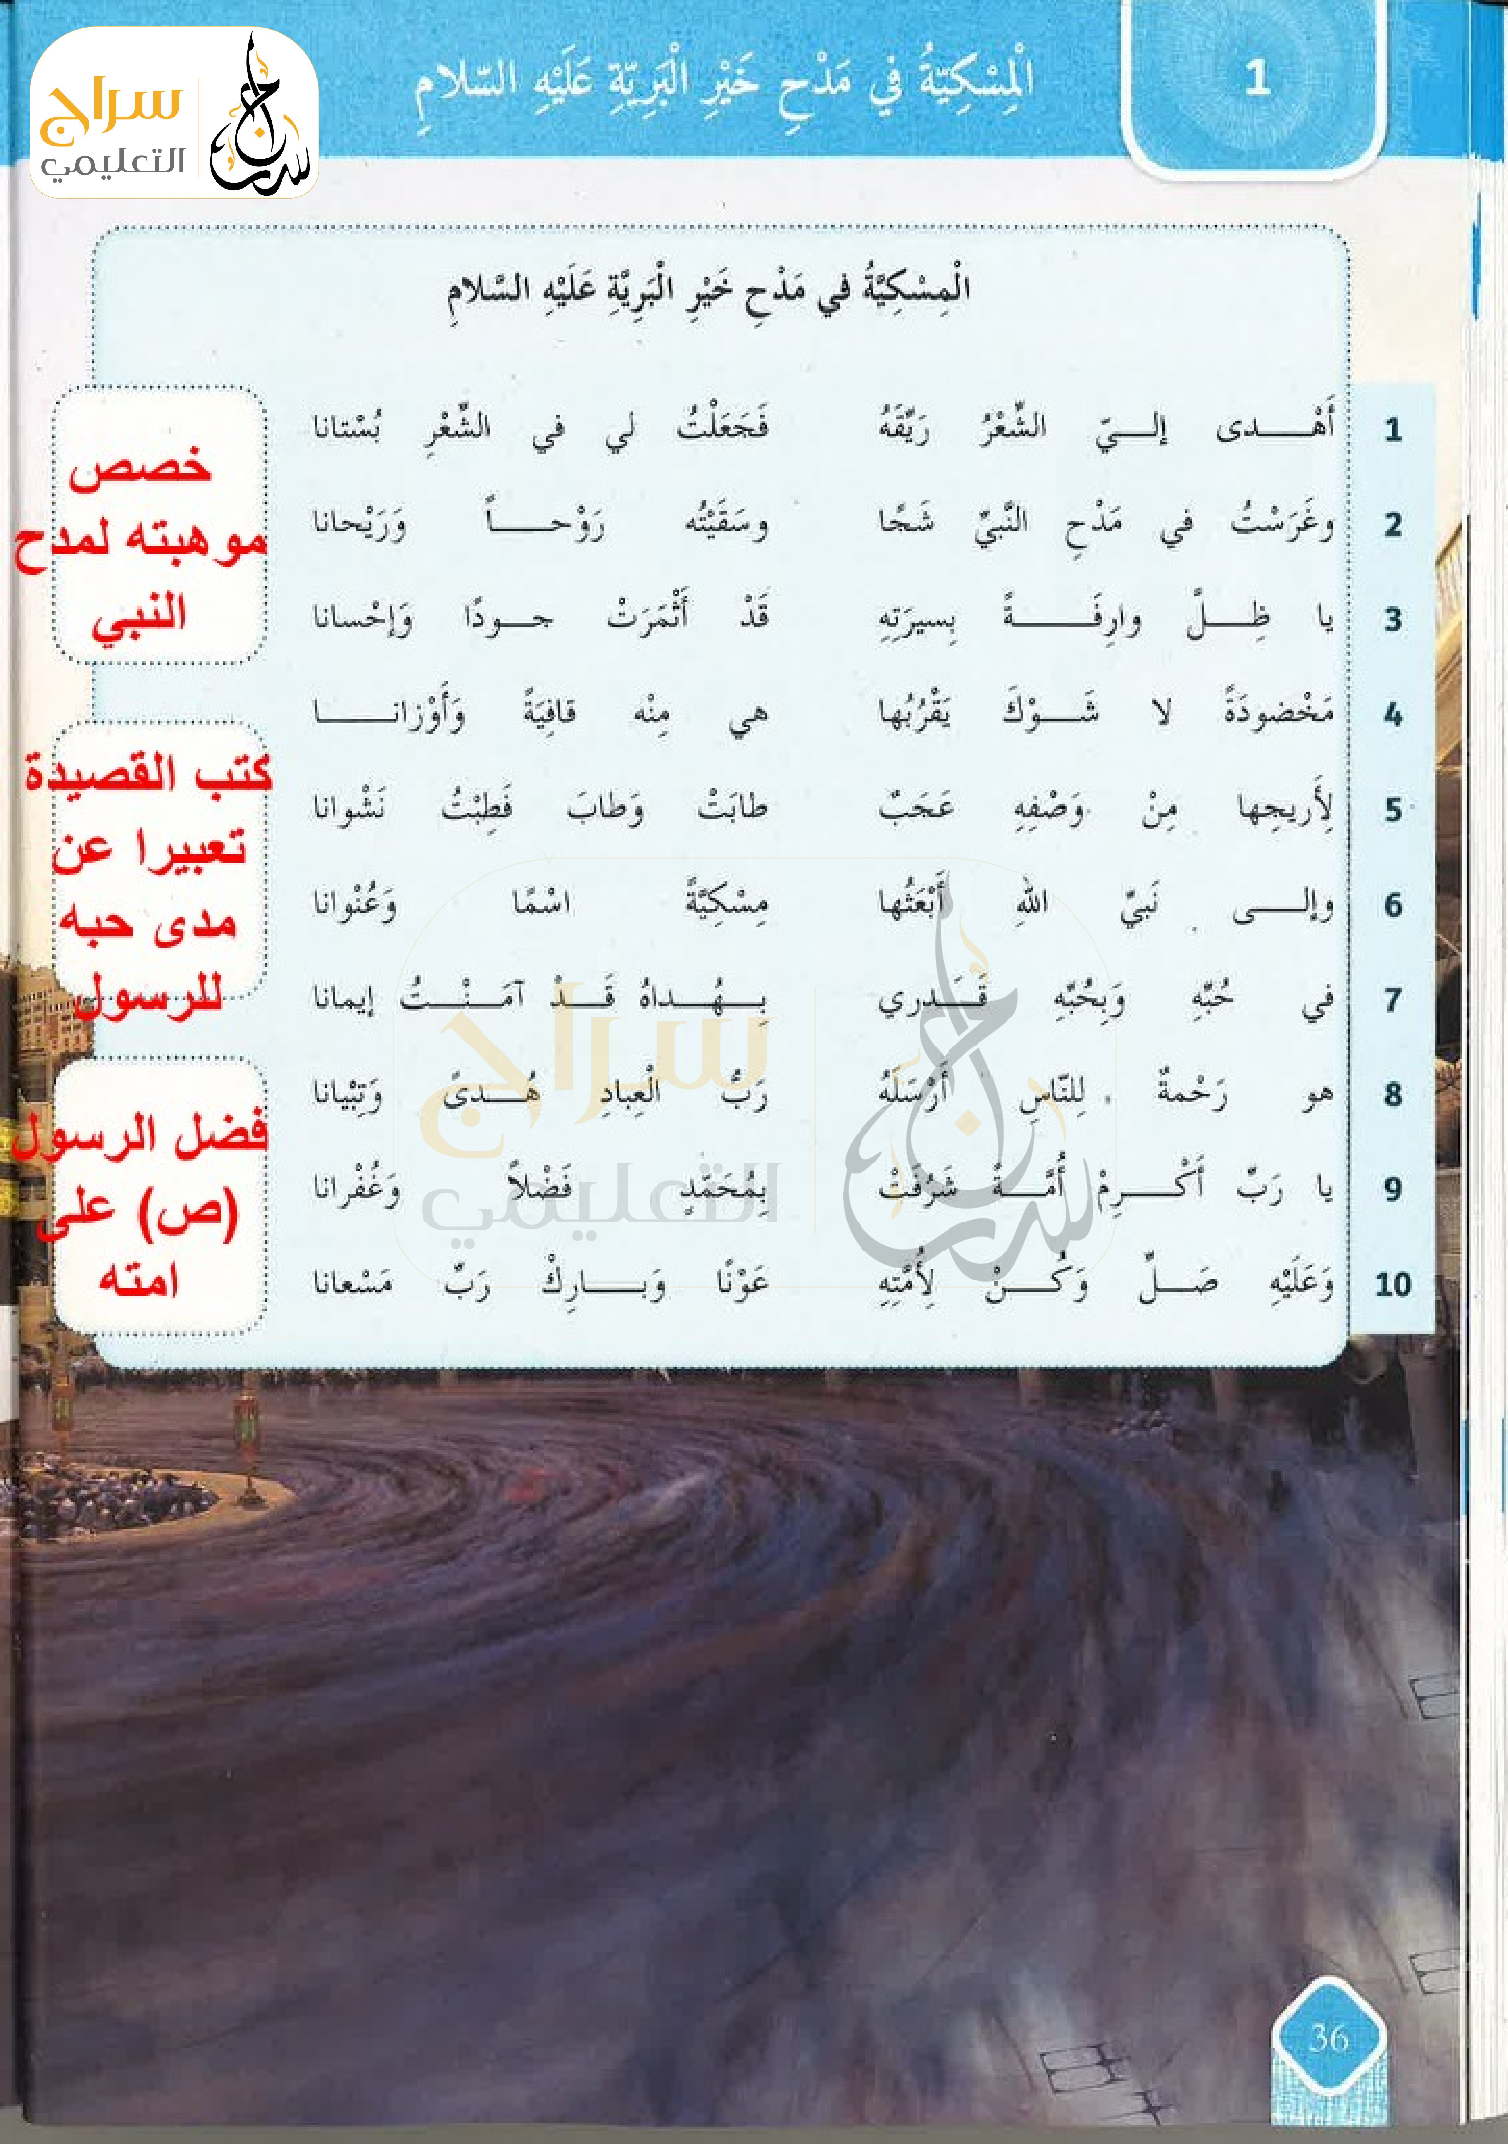 1
الْمِسْكِيّةُ في مَدْحِ خَيْرِ الْبَرِيّةِ عَلَيْهِ السّلامِ
سراج
التعليمي
الْمِسْكِيَّةُ في مَدْحِ خَيْرِ الْبَرِيَّةِ عَلَيْهِ السَّلامِ
1 أَهْـــدى إلـــيّ الشِّعْرُ رَيِّقَهُ فَجَعَلْتُ لي في الشِّعْرِ بُسْتانا
2 وغَرَسْتُ في مَدْحِ النَّبيِّ شَجًا وسَقَيْتُه رَوْحـــاً وَرَيْحانا
3 يا ظِـــلَّ وارِفَـــةً بِسيرَتِهِ قَدْ أَثْمَرَتْ جـــودًا وَإحْسانا
4 مَخْضودَةً لا شَـــوْكَ يَقْرُبُها هي مِنْه قافِيَةً وَأَوْزانـــا
5 لِأَريجِها مِنْ وَصْفِهِ عَجَبٌ طابَتْ وَطابَ فَطِبْتُ نَشْوانا
6 وإلـــى نَبيِّ اللهِ أَبْعَثُها مِسْكِيَّةً اسْمًا وَعُنْوانا
7 في حُبِّهِ وَبِحُبِّهِ قَـــدَري بِـــهُـــداهُ قَـــدْ آمَـــنْـــتُ إيمانا
8 هو رَحْمةٌ لِلنّاسِ أَرْسَلَهُ رَبُّ الْعِبادِ هُـــدىً وَتِبْيانا
9 يا رَبِّ أَكْـــرِمْ أُمَّـــةً شَرُفَتْ بِمُحَمَّدٍ فَضْلاً وَغُفْرانا
10 وَعَلَيْهِ صَـــلِّ وَكُـــنْ لِأُمَّتِهِ عَوْنًا وَبـــارِكْ رَبِّ مَسْعانا
خصص
موهبته لمدح
النبي
كتب القصيدة
تعبيرا عن
مدى حبه
للرسول
فضل الرسول
(ص) على
امته
سراج
التعليمي
36